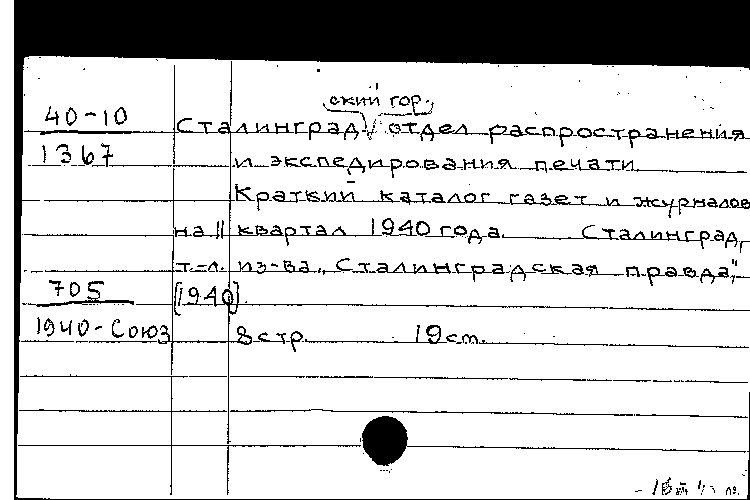 40-10
1367
ский гор.
Сталинград отдел распространения
и экспедирования печати
Краткий каталог газет и журналов
на II квартал 1940 года. Сталинград,
т.-л. из-ва „Сталинградская правда",
705
[1940].
1940-Союз
8 стр. 19 см.